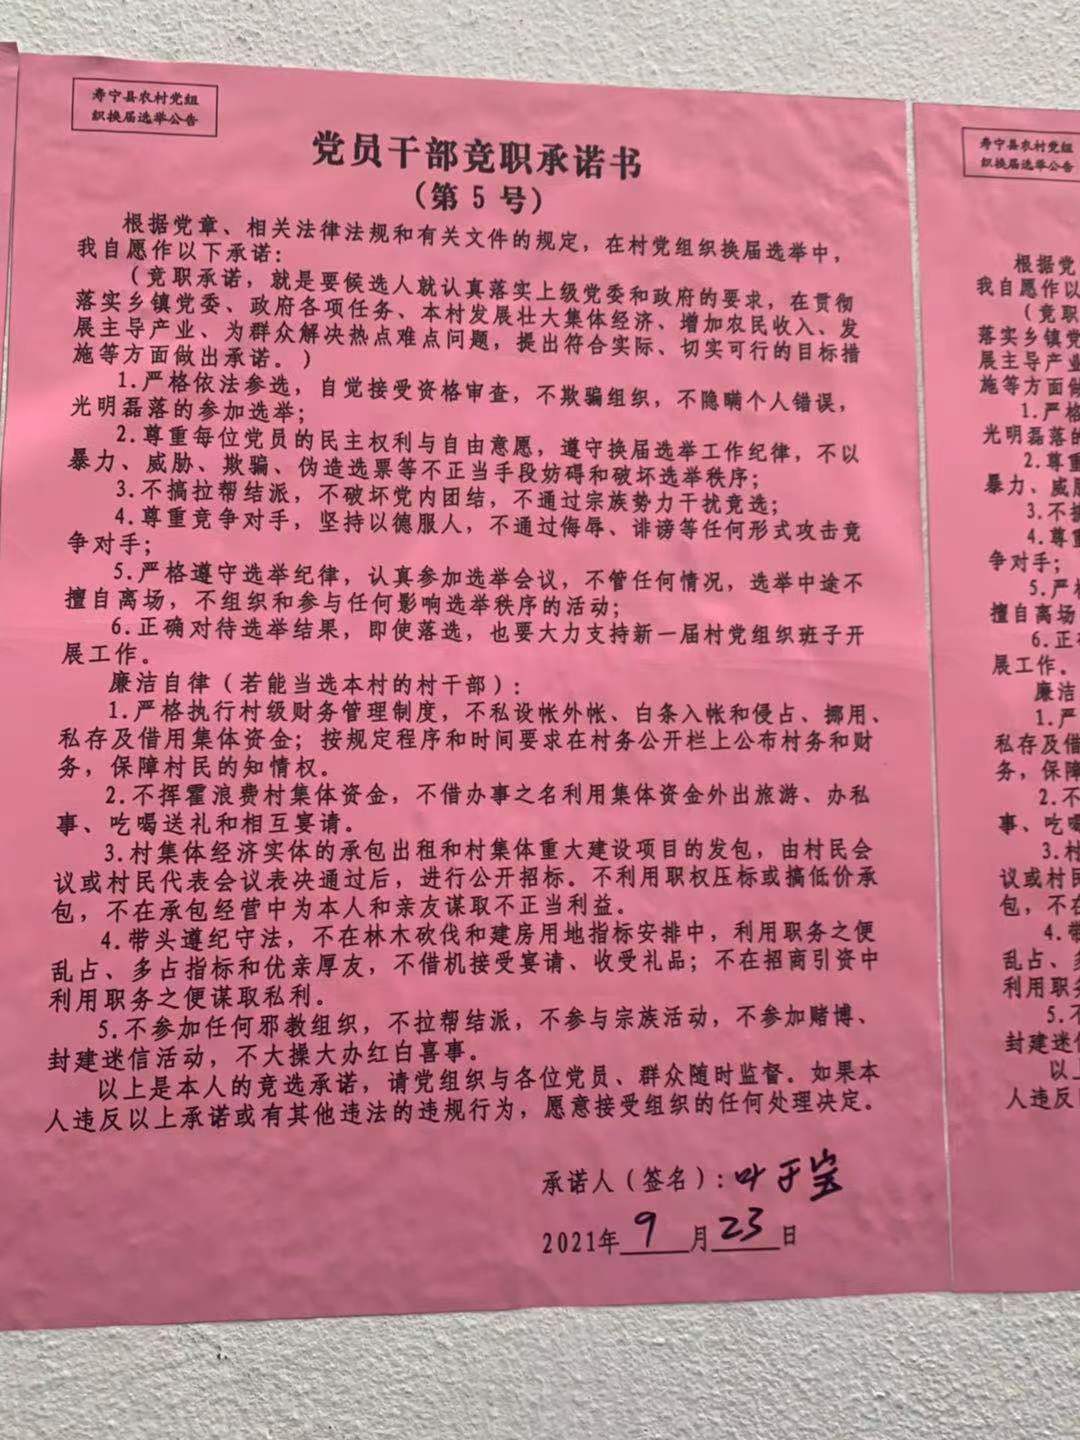 寿宁县农村党组
织换届选举公告
党员干部竞职承诺书
(第 5 号)
根据党章、相关法律法规和有关文件的规定，在村党组织换届选举中，
我自愿作以下承诺：
(竞职承诺，就是要候选人就认真落实上级党委和政府的要求，在贯彻
落实乡镇党委、政府各项任务、本村发展壮大集体经济、增加农民收入、发
展主导产业、为群众解决热点难点问题，提出符合实际、切实可行的目标措
施等方面做出承诺。)
1.严格依法参选，自觉接受资格审查，不欺骗组织，不隐瞒个人错误，
光明磊落的参加选举；
2.尊重每位党员的民主权利与自由意愿，遵守换届选举工作纪律，不以
暴力、威胁、欺骗、伪造选票等不正当手段妨碍和破坏选举秩序；
3.不搞拉帮结派，不破坏党内团结，不通过宗族势力干扰竞选；
4.尊重竞争对手，坚持以德服人，不通过侮辱、诽谤等任何形式攻击竞
争对手；
5.严格遵守选举纪律，认真参加选举会议，不管任何情况，选举中途不
擅自离场，不组织和参与任何影响选举秩序的活动；
6.正确对待选举结果，即使落选，也要大力支持新一届村党组织班子开
展工作。
廉洁自律（若能当选本村的村干部）：
1.严格执行村级财务管理制度，不私设帐外帐、白条入帐和侵占、挪用、
私存及借用集体资金；按规定程序和时间要求在村务公开栏上公布村务和财
务，保障村民的知情权。
2.不挥霍浪费村集体资金，不借办事之名利用集体资金外出旅游、办私
事、吃喝送礼和相互宴请。
3.村集体经济实体的承包出租和村集体重大建设项目的发包，由村民会
议或村民代表会议表决通过后，进行公开招标。不利用职权压标或搞低价承
包，不在承包经营中为本人和亲友谋取不正当利益。
4.带头遵纪守法，不在林木砍伐和建房用地指标安排中，利用职务之便
乱占、多占指标和优亲厚友，不借机接受宴请、收受礼品；不在招商引资中
利用职务之便谋取私利。
5.不参加任何邪教组织，不拉帮结派，不参与宗族活动，不参加赌博、
封建迷信活动，不大操大办红白喜事。
以上是本人的竞选承诺，请党组织与各位党员、群众随时监督。如果本
人违反以上承诺或有其他违法的违规行为，愿意接受组织的任何处理决定。
承诺人（签名）：叶于宝
2021年 9 月 23 日
寿宁县农村党组
织换届选举公告
根据党
我自愿作以
(竞职
落实乡镇党
展主导产业
施等方面做
1.严格
光明磊落的
2.尊重
暴力、威胁
3.不搞
4.尊重
争对手；
5.严格
擅自离场
6.正
展工作。
廉洁
1.严
私存及借
务，保障
2.不
事、吃喝
3.村
议或村民
包，不在
4.带
乱占、多
利用职
5.不
封建迷信
以上
人违反